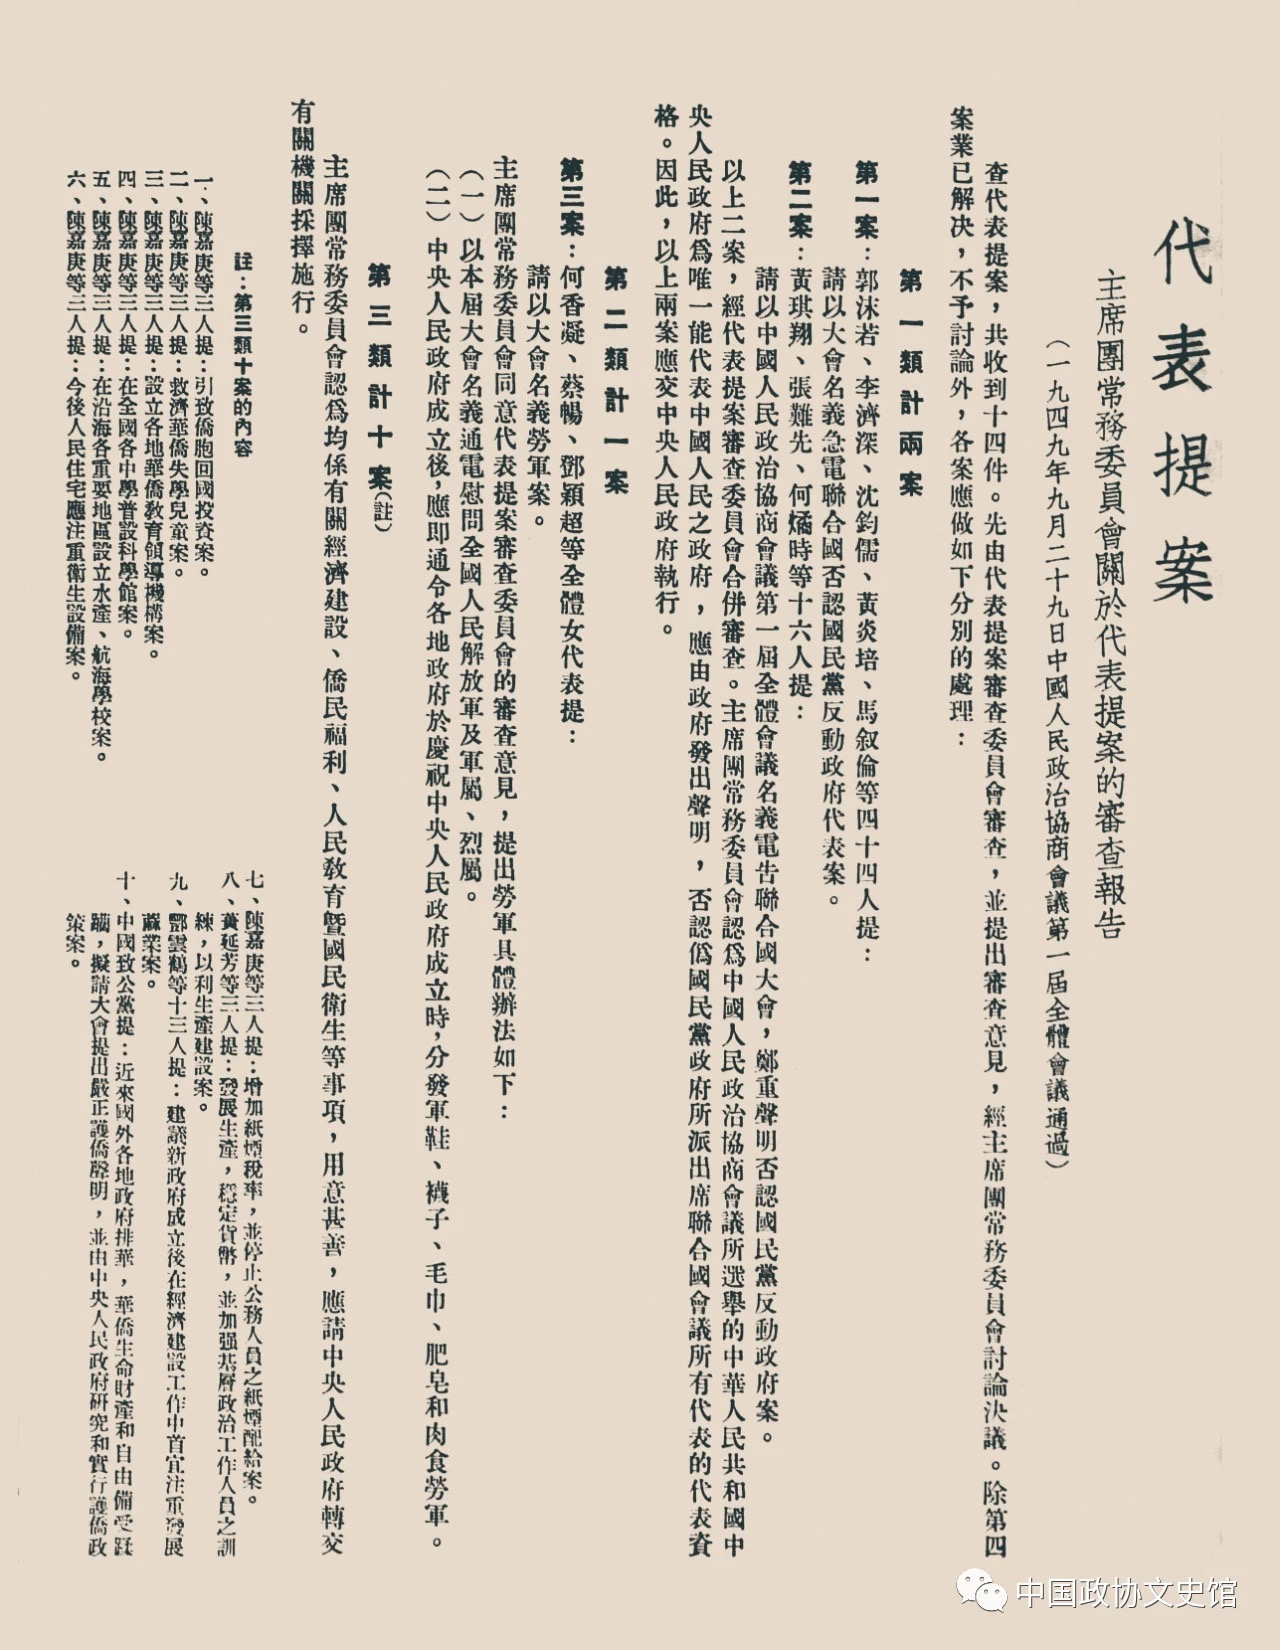 代表提案
主席團常務委員會關於代表提案的審查報告
（一九四九年九月二十九日中國人民政治協商會議第一屆全體會議通過）
查代表提案，共收到十四件。先由代表提案審查委員會審查，並提出審查意見，經主席團常務委員會討論決議。除第四
案業已解决，不予討論外，各案應做如下分別的處理：
第一類計兩案
第一案：郭沫若、李濟深、沈鈞儒、黃炎培、馬叙倫等四十四人提：
請以大會名義急電聯合國否認國民黨反動政府代表案。
第二案：黃琪翔、張難先、何燏時等十六人提：
請以中國人民政治協商會議第一屆全體會議名義電告聯合國大會，鄭重聲明否認國民黨反動政府案。
以上二案，經代表提案審查委員會合併審查。主席團常務委員會認爲中國人民政治協商會議所選舉的中華人民共和國中
央人民政府爲唯一能代表中國人民之政府，應由政府發出聲明，否認僞國民黨政府所派出席聯合國會議所有代表的代表資
格。因此，以上兩案應交中央人民政府執行。
第二類計一案
第三案：何香凝、蔡暢、鄧穎超等全體女代表提：
請以大會名義勞軍案。
主席團常務委員會同意代表提案審查委員會的審查意見，提出勞軍具體辦法如下：
（一）以本屆大會名義通電慰問全國人民解放軍及軍屬、烈屬。
（二）中央人民政府成立後，應即通令各地政府於慶祝中央人民政府成立時，分發軍鞋、襪子、毛巾、肥皂和肉食勞軍。
第三類計十案（註）
主席團常務委員會認爲均係有關經濟建設、僑民福利、人民敎育暨國民衛生等事項，用意甚善，應請中央人民政府轉交
有關機關採擇施行。
註：第三類十案的內容
一、陳嘉庚等三人提：引致僑胞回國投資案。
二、陳嘉庚等三人提：救濟華僑失學兒童案。
三、陳嘉庚等三人提：設立各地華僑敎育領導機構案。
四、陳嘉庚等三人提：在全國各中學普設科學館案。
五、陳嘉庚等三人提：在沿海各重要地區設立水產、航海學校案。
六、陳嘉庚等三人提：今後人民住宅應注重衛生設備案。
七、陳嘉庚等三人提：增加紙煙稅率，並停止公務人員之紙煙配給案。
八、黃延芳等三人提：發展生產，穩定貨幣，並加强基層政治工作人員之訓
練，以利生產建設案。
九、酆雲鶴等十三人提：建議新政府成立後在經濟建設工作中首宜注重發展
蔴業案。
十、中國致公黨提：近來國外各地政府排華，華僑生命財產和自由備受蹂
躪，擬請大會提出嚴正護僑聲明，並由中央人民政府研究和實行護僑政
策案。
中国政协文史馆